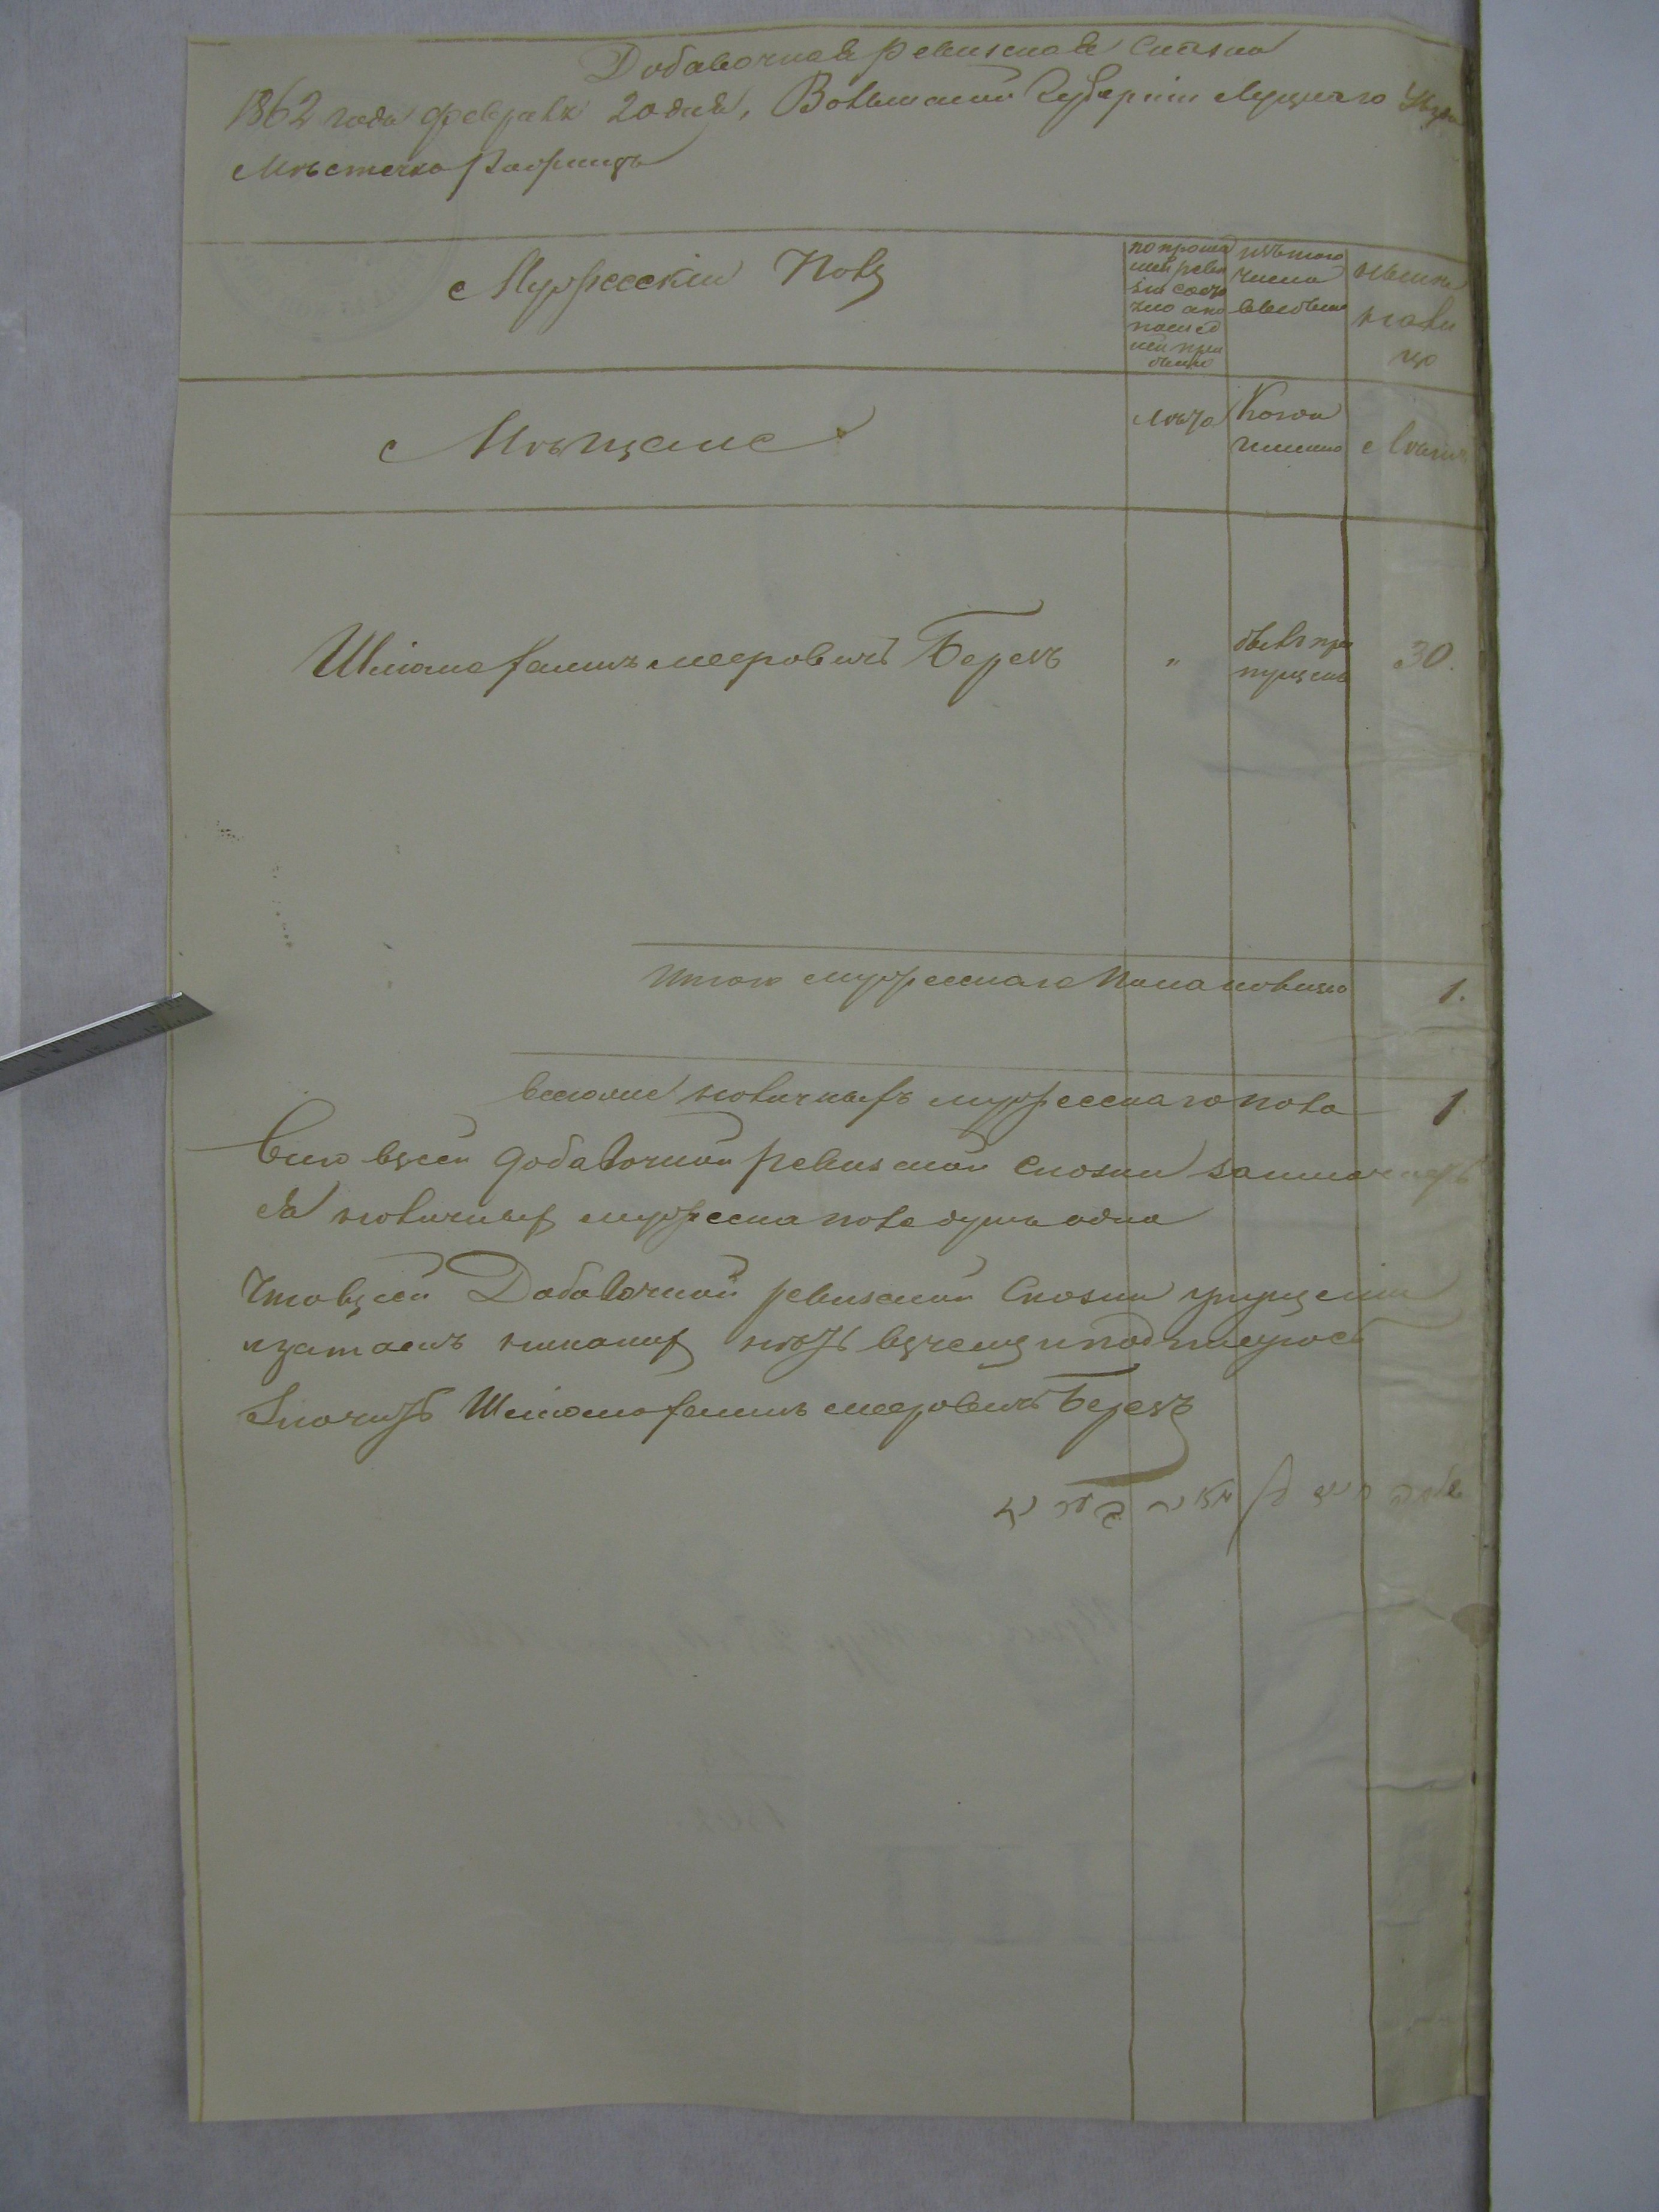 Добавочная ревизская сказка
1862 года февраля 20 дня, Волынской Губерніи Луцкаго Уѣзда
Мѣстечка
Мужескій Полъ
по прошлой ревизіи состояло или послѣ оной прибыло
изъ того числа выбыло
нынѣ на лицо
Мѣщане
лѣта
Когда именно
Лѣта
Шліома Хаимъ Мееровичъ Березъ
"
былъ пропущенъ
30.
Итого мужескаго пола на лицо 1.
наличныхъ мужескаго пола 1
Всего в сей добавочной ревизской сказки
наличныхъ мужеска пола душъ одна
Что в сей Добавочной ревизской сказки
никакихъ нѣтъ в чемъ и подписуюсь
Шліома Хаимъ Мееровичъ Березъ